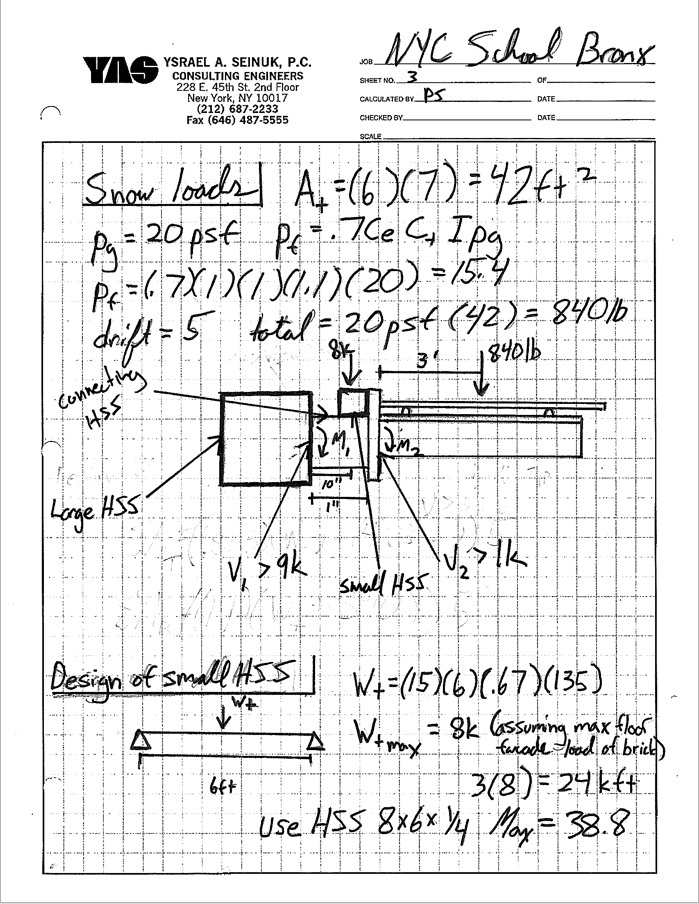 YAS YSRAEL A. SEINUK, P.C.
CONSULTING ENGINEERS
228 E. 45th St. 2nd Floor
New York, NY 10017
(212) 687-2233
Fax (646) 487-5555
JOB NYC School Bronx
SHEET NO. 3 OF
CALCULATED BY PS DATE
CHECKED BY DATE
SCALE
Snow loads At = (6)(7) = 42ft²
pg = 20psf Pf = .7CeCt Ipg
Pf = (.7)(1)(1)(1.1)(20) = 15.4
drift = 5 total = 20psf (42) = 840lb
8k 3' 840lb
connecting
HSS
M1 M2
10"
1"
Large HSS
V1 > 9k small HSS V2 > 1k
Design of small HSS Wt = (15)(6)(.67)(135)
Wt
Wtmax = 8k (assuming max floor
facade = load of brick)
6ft 3(8) = 24 kft
use HSS 8x6x 1/4 Max = 38.8